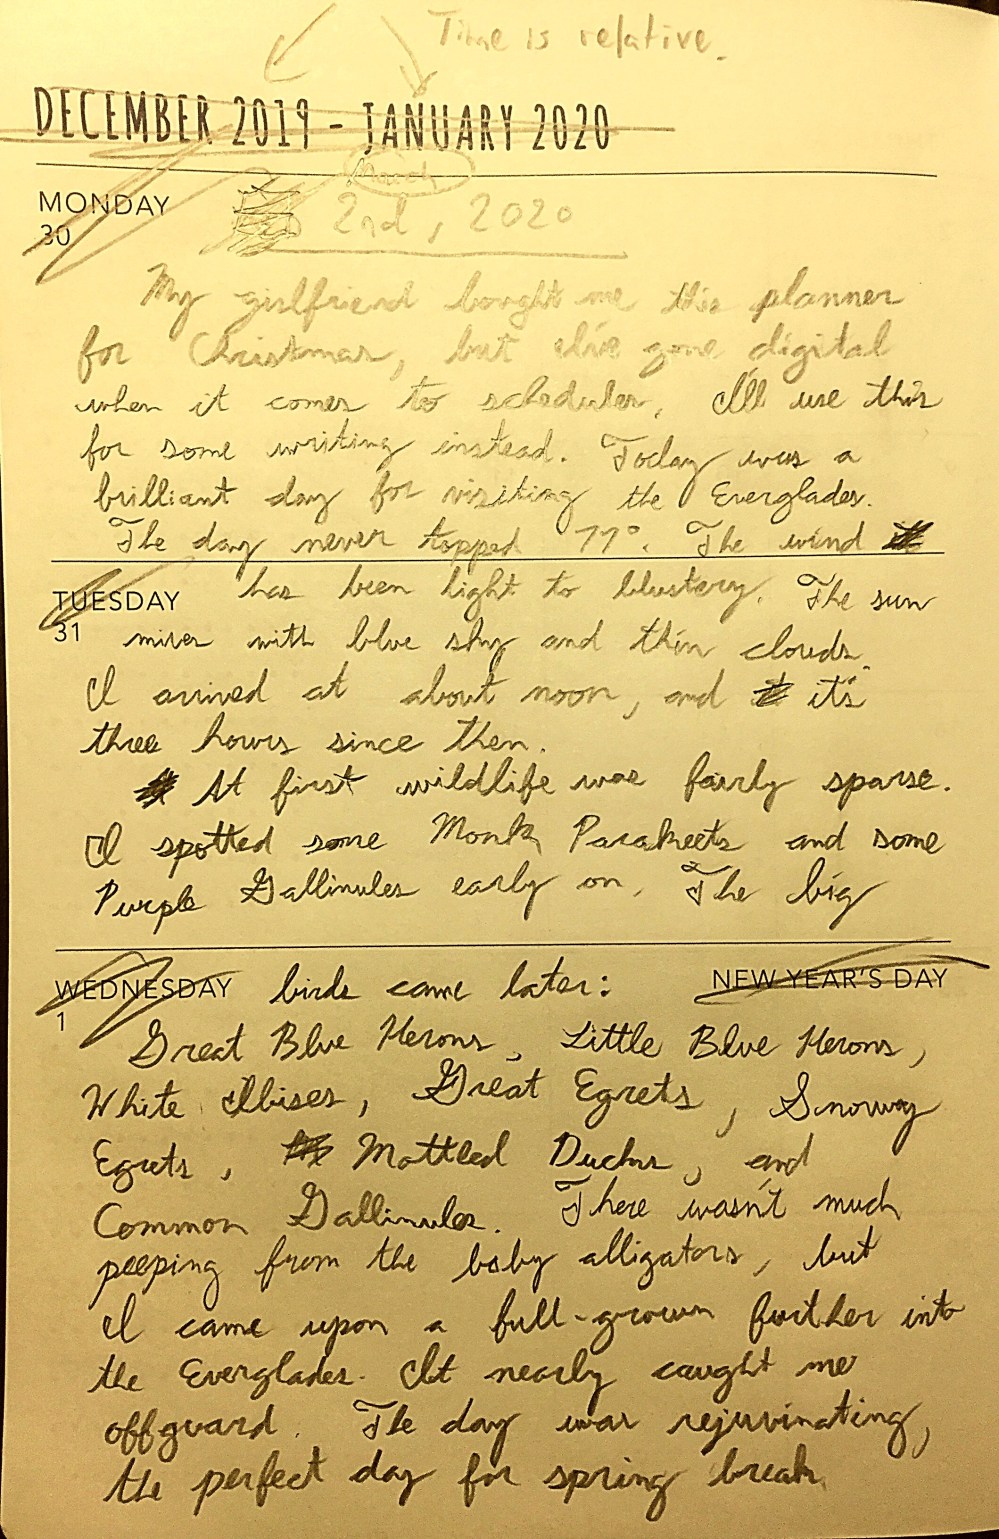 Time is relative.
DECEMBER 2019 - JANUARY 2020
March
MONDAY
30
2nd, 2020
My girlfriend bought me this planner
for Christmas, but I've gone digital
when it comes to schedules. I'll use this
for some writing instead. Today was a
brilliant day for visiting the Everglades.
The day never topped 77°. The wind
TUESDAY
31
has been light to blustery. The sun
mixes with blue sky and thin clouds.
I arrived at about noon, and it's
three hours since then.
At first wildlife was fairly sparse.
I spotted some Monk Parakeets and some
Purple Gallinules early on. The big
WEDNESDAY
1
birds came later:
NEW YEAR'S DAY
Great Blue Herons, Little Blue Herons,
White Ibises, Great Egrets, Snowwy
Egrets, Mottled Ducks, and
Common Gallinules. There wasn't much
peeping from the baby alligators, but
I came upon a full-grown further into
the Everglades. It nearly caught me
offguard. The day was rejuvinating,
the perfect day for spring break.